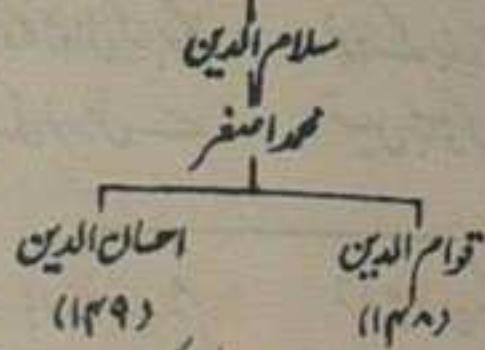 سلام الدین
محمد اصغر
قوام الدین احسان الدین
(۱۴۸) (۱۴۹)